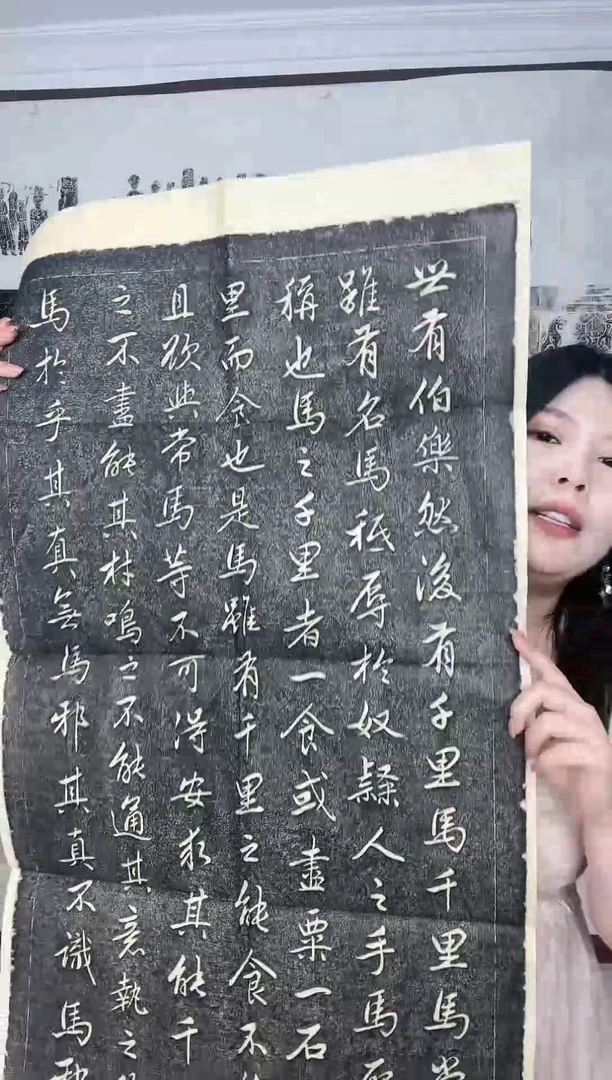 世有伯樂然後有千里馬千里馬
雖有名馬秖辱於奴隸人之手
稱也馬之千里者一食或盡粟一石
里而食也是馬雖有千里之能食不
且欲與常馬等不可得安求其能千
之不盡能其材鳴之不能通其意執之
馬於乎其真無馬邪其真不識馬